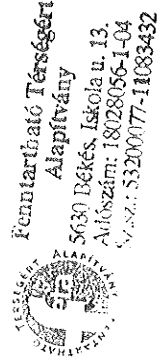 Fenntartható Térségért
Alapítvány
5630 Békés, Iskola u. 13.
Adószám: 18028056-1-04
Sz.sz.: 53200077-11083432
TÉRSÉGÉRT ALAPÍTVÁNY
FENNTARTHATÓ